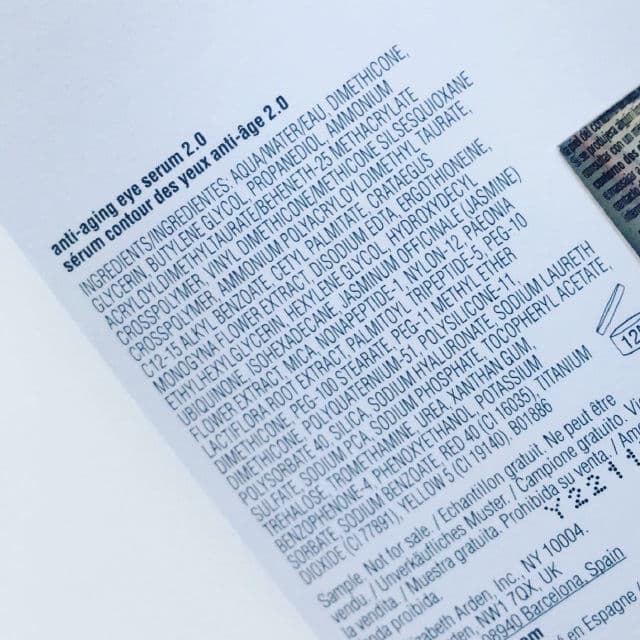 anti-aging eye serum 2.0
sérum contour des yeux anti-âge 2.0
INGREDIENTS/INGRÉDIENTS: AQUA/WATER/EAU, DIMETHICONE,
GLYCERIN, BUTYLENE GLYCOL, PROPANEDIOL, AMMONIUM
ACRYLOYLDIMETHYLTAURATE/BEHENETH-25 METHACRYLATE
CROSSPOLYMER, VINYL DIMETHICONE/METHICONE SILSESQUIOXANE
CROSSPOLYMER, AMMONIUM POLYACRYLOYLDIMETHYL TAURATE,
C12-15 ALKYL BENZOATE, CETYL PALMITATE, CRATAEGUS
MONOGYNA FLOWER EXTRACT, DISODIUM EDTA, ERGOTHIONEINE,
ETHYLHEXYLGLYCERIN, HEXYLENE GLYCOL, HYDROXYDECYL
UBIQUINONE, ISOHEXADECANE, JASMINUM OFFICINALE (JASMINE)
FLOWER EXTRACT, MICA, NONAPEPTIDE-1, NYLON-12, PAEONIA
LACTIFLORA ROOT EXTRACT, PALMITOYL TRIPEPTIDE-5, PEG-10
DIMETHICONE, PEG-100 STEARATE, PEG-11 METHYL ETHER
DIMETHICONE, POLYQUATERNIUM-51, POLYSILICONE-11,
POLYSORBATE 40, SILICA, SODIUM HYALURONATE, SODIUM LAURETH
SULFATE, SODIUM PCA, SODIUM PHOSPHATE, TOCOPHERYL ACETATE,
TREHALOSE, TROMETHAMINE, UREA, XANTHAN GUM,
BENZOPHENONE-4, PHENOXYETHANOL, POTASSIUM
SORBATE, SODIUM BENZOATE, RED 40 (CI 16035), TITANIUM
DIOXIDE (CI 77891), YELLOW 5 (CI 19140). B01886
Sample. Not for sale. / Échantillon gratuit. Ne peut être
vendu. / Unverkäufliches Muster. / Campione gratuito. Vi
la vendita. / Muestra gratuita. Prohibida su venta. / Am
da proibida.
abeth Arden, Inc. NY, NY 10004.
en, NW1 7QX, UK
08940 Barcelona, Spain
en Espagne
12